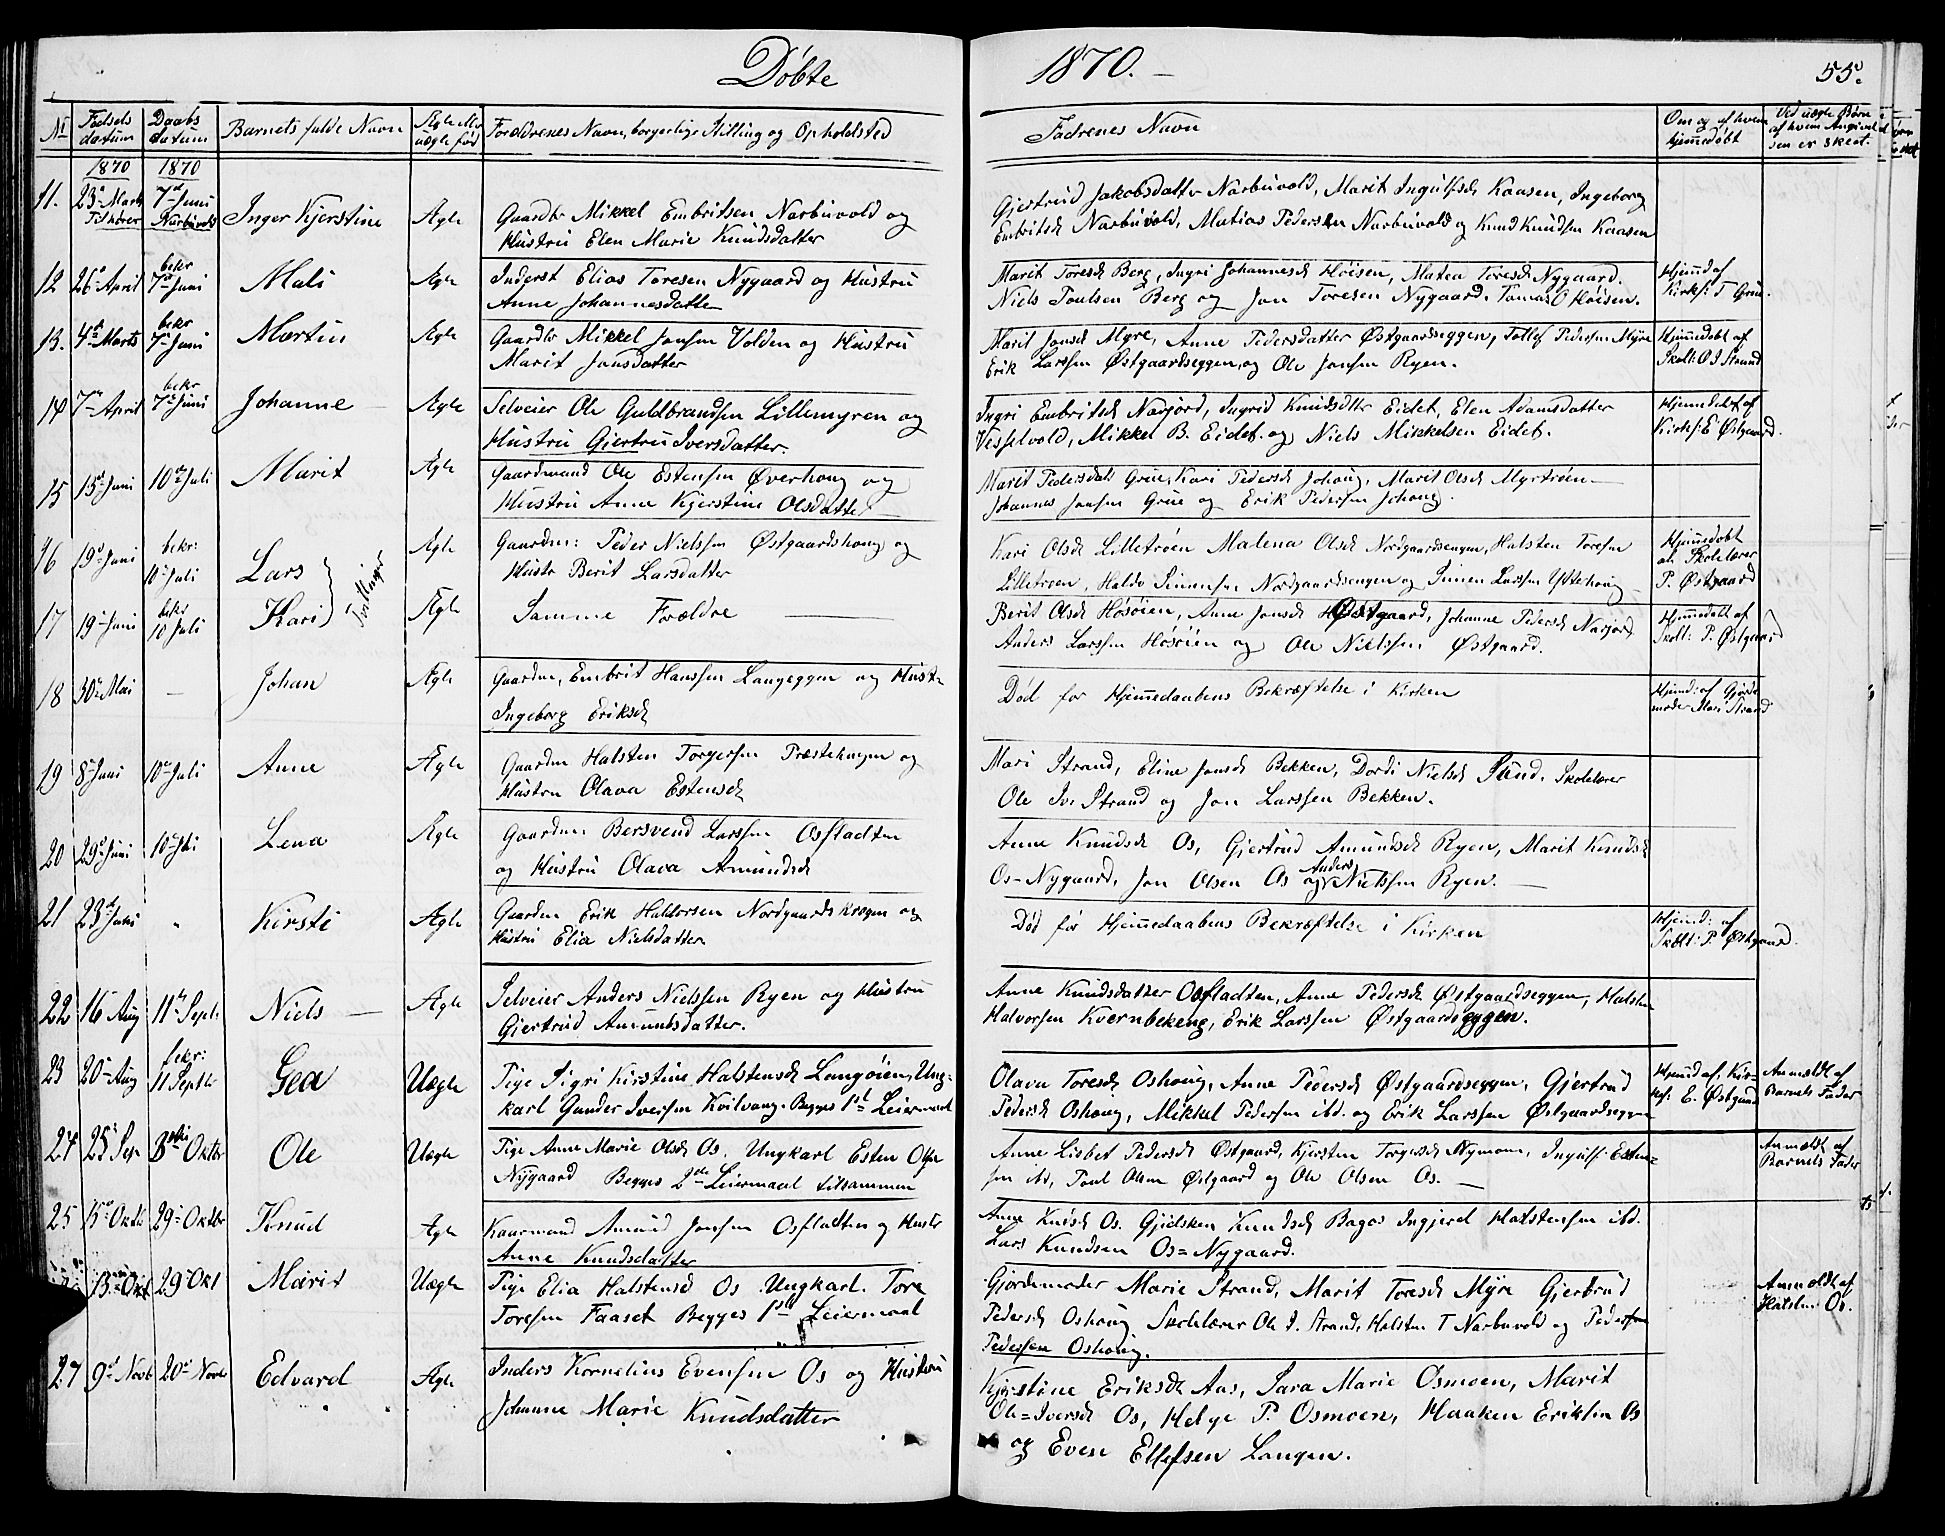 Döbte 1870. 55.
No Fødsels datum Daabs datum Barnets fulde Navn Ægte eller uægte fød Forældrenes Navn, borgerlige Stilling og Opholdsted Fadrenes Navn Om og af hvem hjemmedøbt Ved uægte Børn af hvem Angivelsen er skeet.
1870 1870
11. 23de Marts 7de Juni Narbuvold Inger Kjerstine Ægte
Gaardbr Mikkel Embritsen Narbuvold og
Hustru Elen Marie Knudsdatter
Gjertrud Jakobsdatter Narbuvold, Marit Ingulfsd Kaasen, Ingeborg
Embritsd Narbuvold, Matias Pedersen Narbuvold og Knud Knudsen Kaasen
12 26de April bekr 7de Juni Mali Ægte
Inderst Elias Toresen Nygaard og Hustru
Anne Johannesdatter
Marit Toresd Berg, Ingri Johannesd Höisen, Matea Toresd Nygaard.
Niels Poulsen Berg og Jon Toresen Nygaard. Tomas O Höisen.
Hjemd af
Kirks: T Grue.
13. 4de Marts bekr 7de Juni Martin Ægte
Gaardbr Mikkel Jonsen Volden og Hustru
Marit Jonsdatter
Marit Jonsd Myre, Anne Pedersdatter Østgaardseggen, Tollef Pedersen Myre
Erik Larssen Østgaardseggen, og Ole Jonsen Ryen.
Hjemmedøbt af
Skoll: O I Strand
14 7de April bekr 7de Juni Johanne Ægte
Selveier Ole Guldbrandsen Lillemyren og
Hustru Gjertru Iversdatter.
Ingri Embritsd Narjord, Ingrid Knudsdtter Eidet, Elen Adamsdatter
Vesslvold, Mikkel B. Eidet og Niels Mikkelsen Eidet.
Hjemmedøbt af
Kirks: E Østgaard.
15 15de Juni 10de Juli Marit Ægte
Gaardmand Ole Estensen Øverhoug og
Hustru Anne Kjerstine Olsdatter
Marit Pedersdatt Grue, Kari Pedersd Johoug, Marit Olsd Myrtrøen
Johannes Jonsen Grue og Erik Pedersen Johoug.
16 19de Juni bekr: 10de Juli Lars Ægte
Tvillinger
Gaardm: Peder Nielssen Østgaardshoug og
Hustr Berit Larsdatter
Kari Olsd Lilletrøen Malena Olsd Nordgaardsengen, Halsten Toresen
Lilletroen, Haldo Simensen Nordgaardsengen og Simen Larssen Ytterhoug
Hjemmedøbt
af Skolelærer
P. Østgaard
17 19de Juni bekr 10 Juli Kari Ægte
Samme Forældre
Berit Olsd Hosøien, Anne Jonsd Østgaard, Johanne Pedersd Narjord
Anders Larssen Hosøien og Ole Nielssen Østgaard.
Hjemmedøbt af
Skoll: P. Østgaard
18 30de Mai — Johan Ægte
Gaardm, Embrit Hanssen Langeggen og Hustr
Ingeborg Eriksd
Død før Hjemmedaabens Bekræftelse i Kirken
Hjemd: af Gjorde
moder Mari Strand
19 8de Juni 10de Juli Anne Ægte
Gaardm Halsten Torgersen Præstehagen og
Hustru Olava Estensd
Mari Strand, Eline Jonsd Bekken, Dordi Nielsd Sund. Skolelærer
Ole Iv. Strand og Jon Larssen Bekken.
20 29de Juni 10de Juli Lena Ægte
Gaardm: Bersvend Larssen Osfladten
og Hustru Olava Amundsd
Anne Knudsd Os, Gjertrud Amundsd Ryen, Marit Knudsd
Os-Nygaard, Jon Olsen Os og Anders Nielssen Ryen.
21 23de Juni " Kirsti Ægte
Gaardm Erik Haldorsen Nordgaardskrogen og
Hustru Elia Nielsdatter
Død før Hjemmedaabens Bekræftelse i Kirken
Hjemd: af
Skoll: P. Østgaard.
22 16 Aug 11te Septr Niels Ægte
Selveier Anders Nielssen Ryen og Hustru
Gjertrud Amundsdatter.
Anne Knudsdatter Osfladten, Anne Pedersd Østgaardseggen, Halsten
Halvorsen Kvernbekeng, Erik Larssen Østgaardseggen.
23 20de Aug bekr: 11 Septbr Gea Uægte
Pige Sigri Kirstine Halstensd Langøien, Ung-
karl Gunder Iversen Kvilvang. Begges 1st Leiermaal
Olava Toresd Oshoug, Anne Pedersd Østgaardseggen, Gjertrud
Pedersd Oshoug, Mikkel Pedersen ibd. og Erik Larssen Østgaardseggen
Hjemd af. Kir-
kes: E. Østgaard
Anmeldt af
Barnets Fader
24 25de Sep 3die Oktbr Ole Uægte
Pige Anne Marie Olsd Os. Ungkarl Esten Olsen
Nygaard Begges 2det Leiermaal tilsammen
Anne Lisbet Pedersd Østgaard, Kjersten Torgersd Nymoen, Ingulf: Esten-
sen ibd, Poul Olsen Østgaard og Ole Olsen Os.
Anmeldt af
Barnets Fader
25 15de Oktb 29de Oktbr Knud Ægte
Kaarmand Amund Jonsen Osfladten og Hustr
Anne Knudsdatter
Anne Knudsd Os. Gjedsken Knudsd Bagos Ingjerd Halstensen ibd.
Lars Knudsen Os=Nygaard.
13de Okt 29de Okt Marit Uægte
Pige Elia Halstensd Os. Ungkarl. Tore
Toresen Faaset Begges 1ste Leiermaal
Gjordemoder Marie Strand, Marit Toresd Myre Gjertrud
Pedersd Oshoug Skolelærer Ole I. Strand, Halsten T Narbuvold og Pedersen
Pedersen Oshoug.
Anmeldt af
Halsten Os.
27 9de Novb 20de Novbr Edvard Ægte
Inders Kornelius Evensen Os og Hustru
Johanne Marie Knudsdatter
Kjerstine Eriksd Aas, Sara Marie Osmoen, Marit
Ole=Iversd Os, Helge P. Osmoen, Haaken Eriksen Os
og Even Ellefsen Langen.